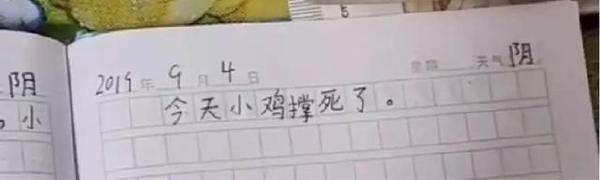 阴
2019年 9月 4日 星期 天气 阴
。小
今天小鸡撑死了。
5